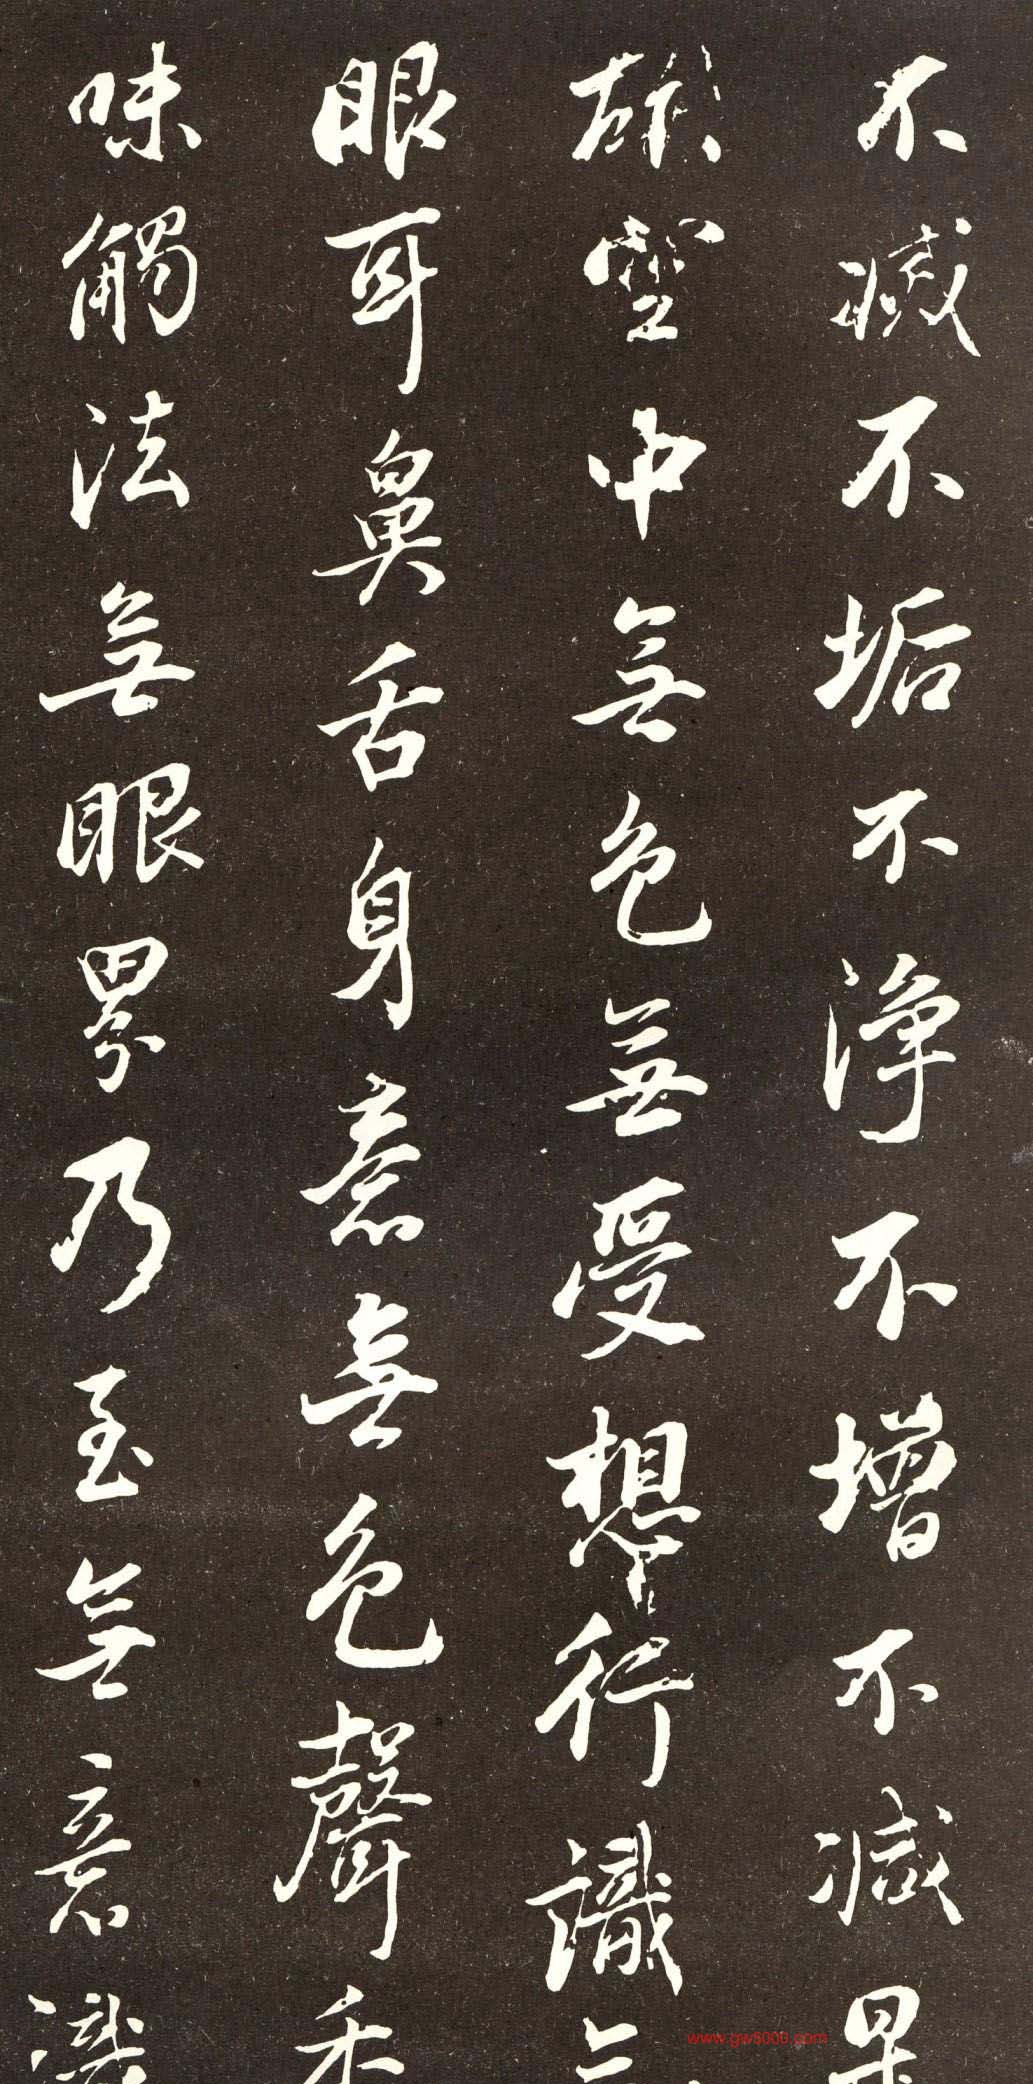 不滅不垢不淨不增不減是
故空中無色無受想行識無
眼耳鼻舌身意無色聲香
味觸法無眼界乃至無意識
www.gw5000.com